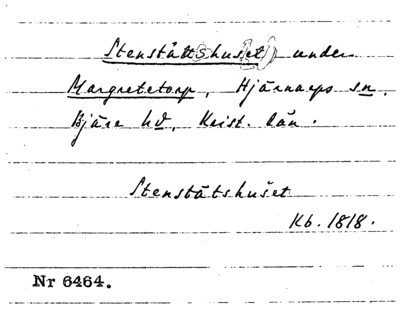 Stenstättshus(et) under
Margretetorp, Hjärnarps sn.
Bjäre hd, Krist. län.
Stenstätshuset
Kb. 1818.
Nr 6464.